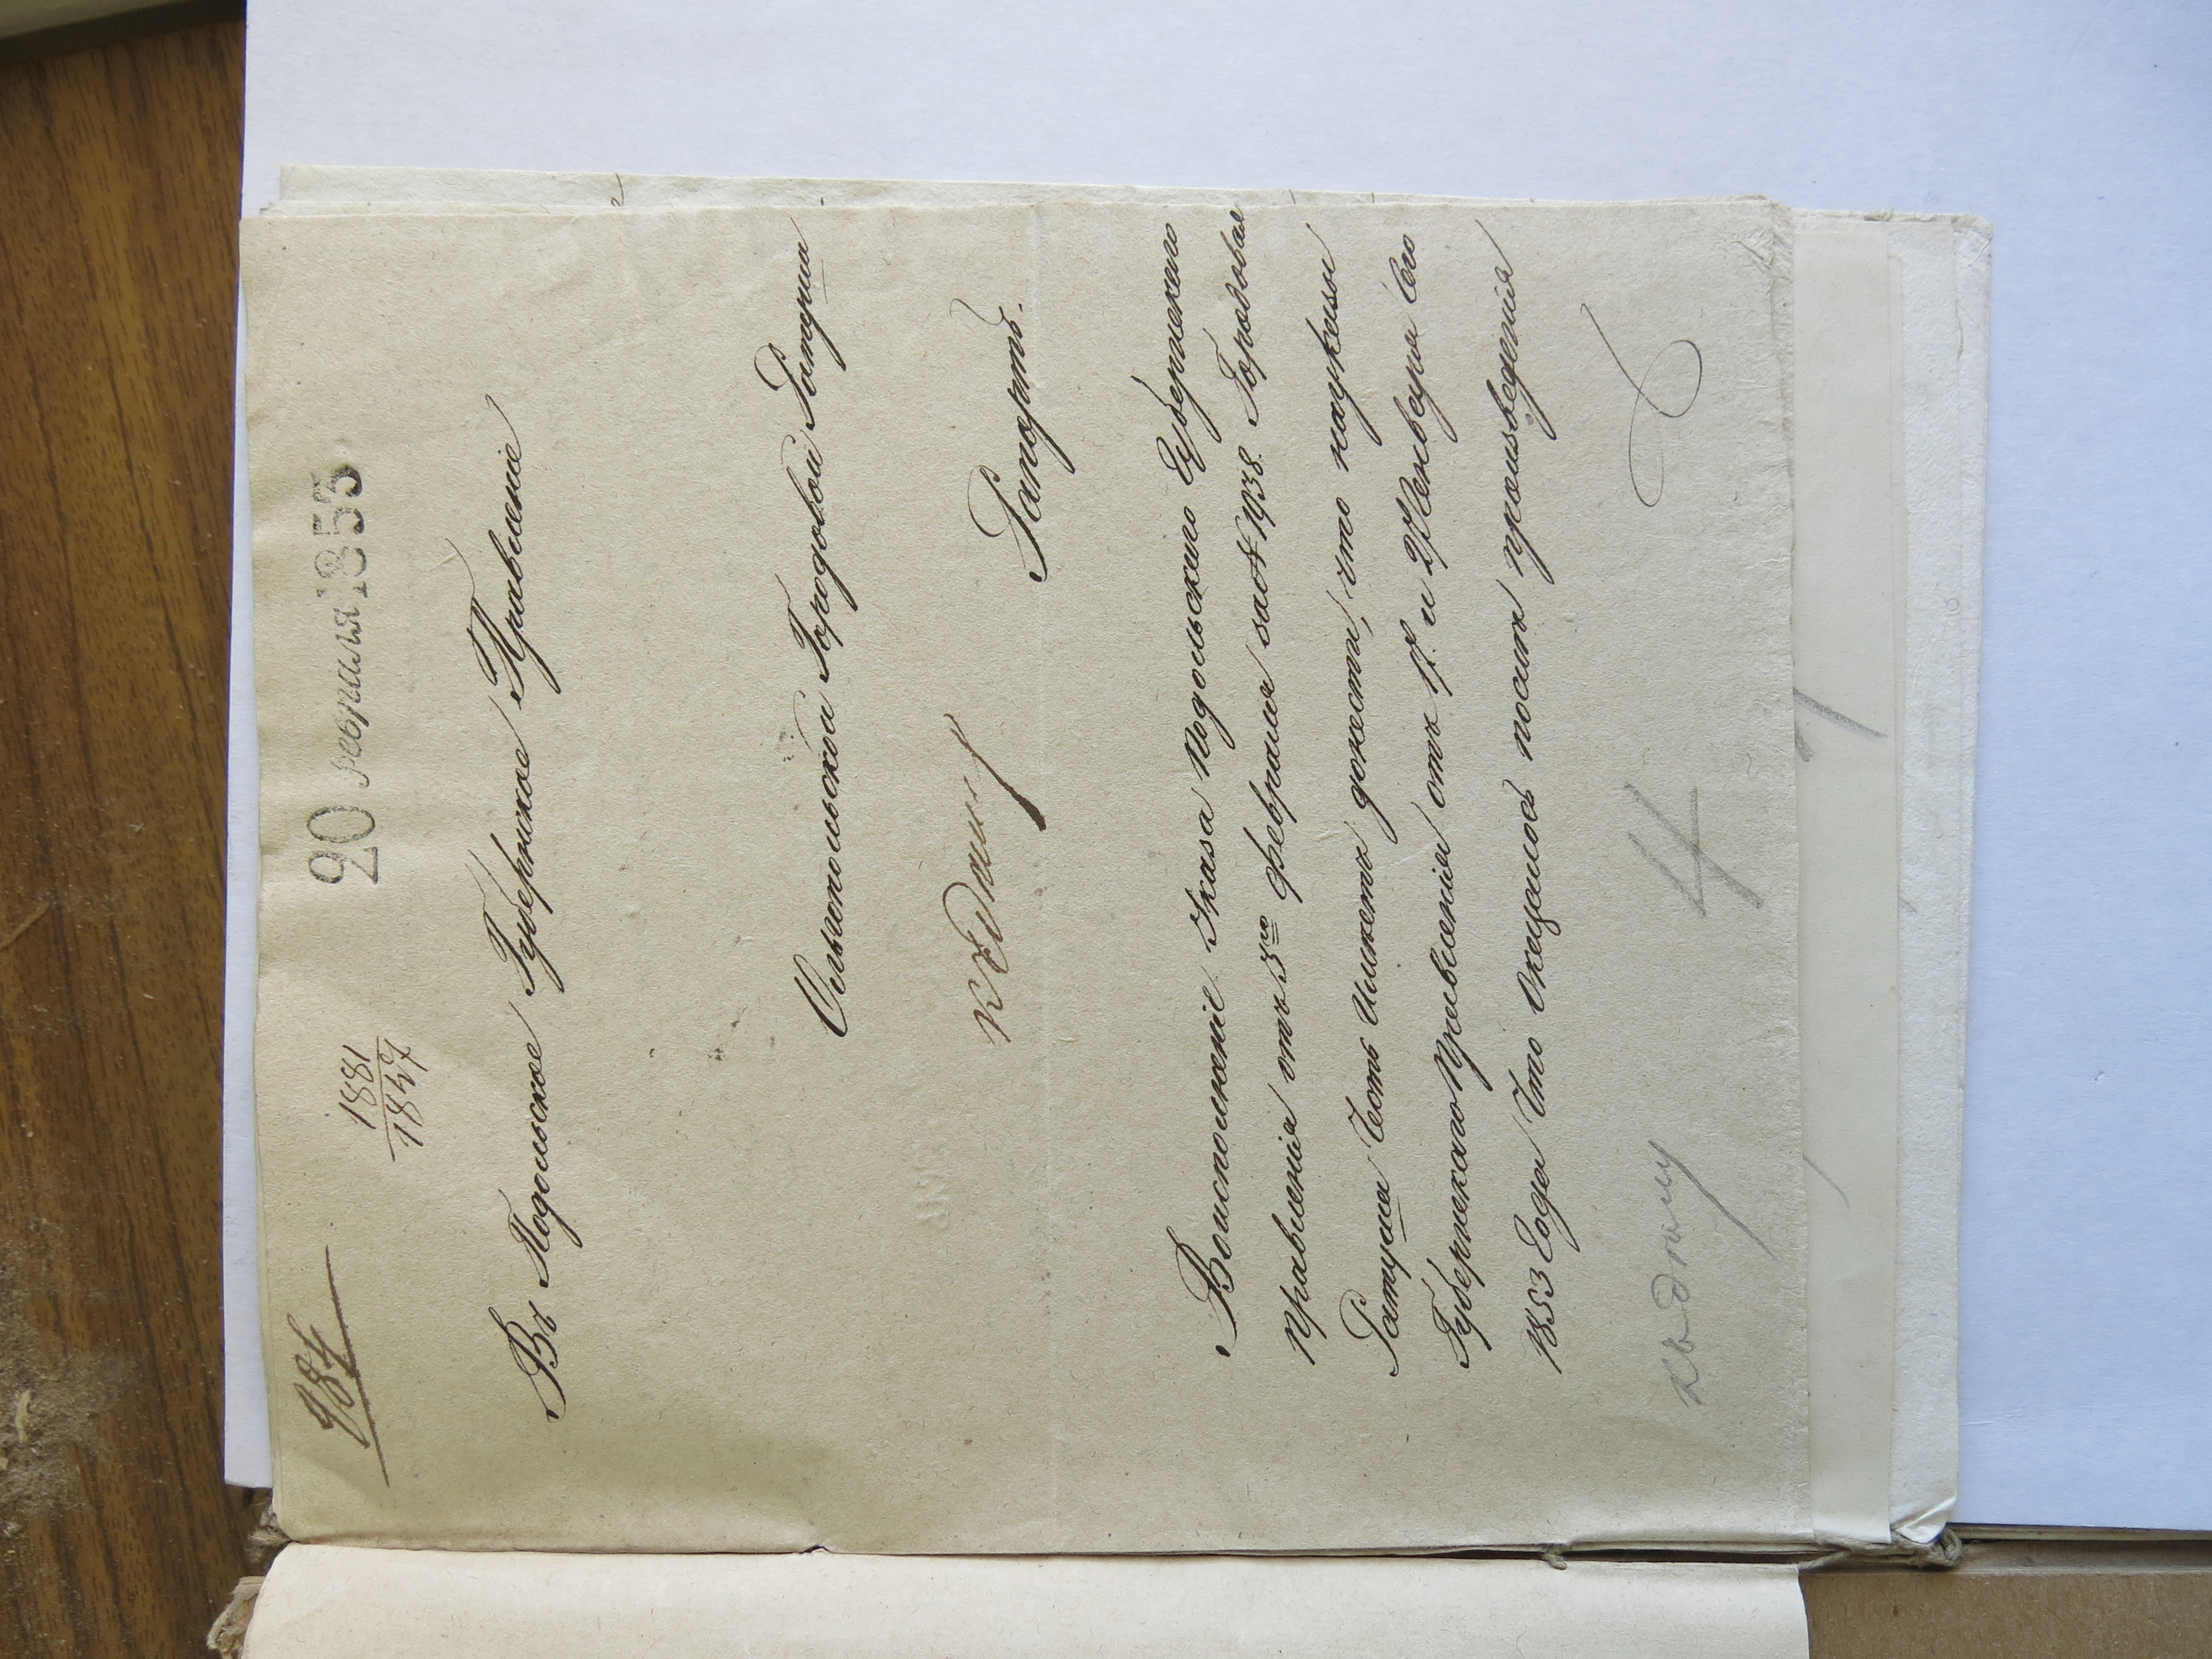 984
1881
1847
20 февраля 1853
Въ Подольское Губернское Правленіе
Ольгопольской Городовой Ратуши
Рапортъ.
Къ дѣлу
Воисполненіе Указа Подольскаго Губернскаго
правленія отъ 5го февраля за № 1938. Городовая
Ратуша Честь Имѣетъ донести, что на указы
Губернскаго Правленія отъ 17. и 27 Генваря сего
1853 Года Что Окещалось посить произведенія
6
къ дѣлу
4